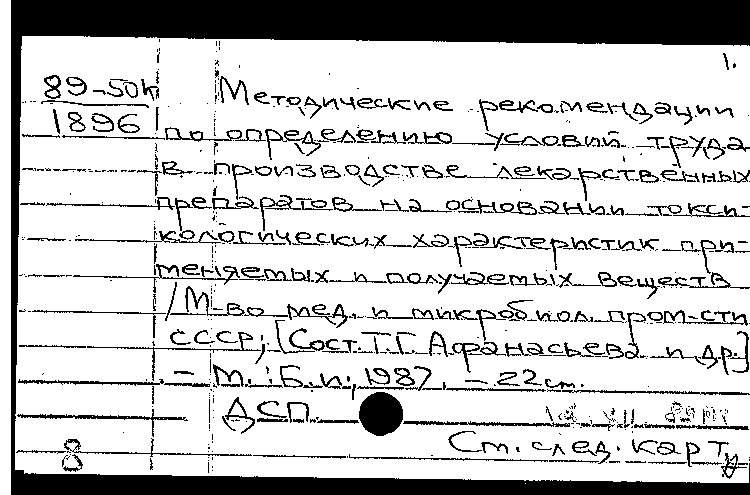 1.
89-50к
1896
Методические рекомендации
по определению условий труда
в производстве лекарственных
препаратов на основании токси-
кологических характеристик при-
меняемых и получаемых веществ
/М-во мед. и микробиол. пром-сти
СССР; [Сост. Т.Г. Афанасьева и др.]
. – М. : Б.и., 1987. – 22 с.
ДСП.
Ст. след. карт.
8